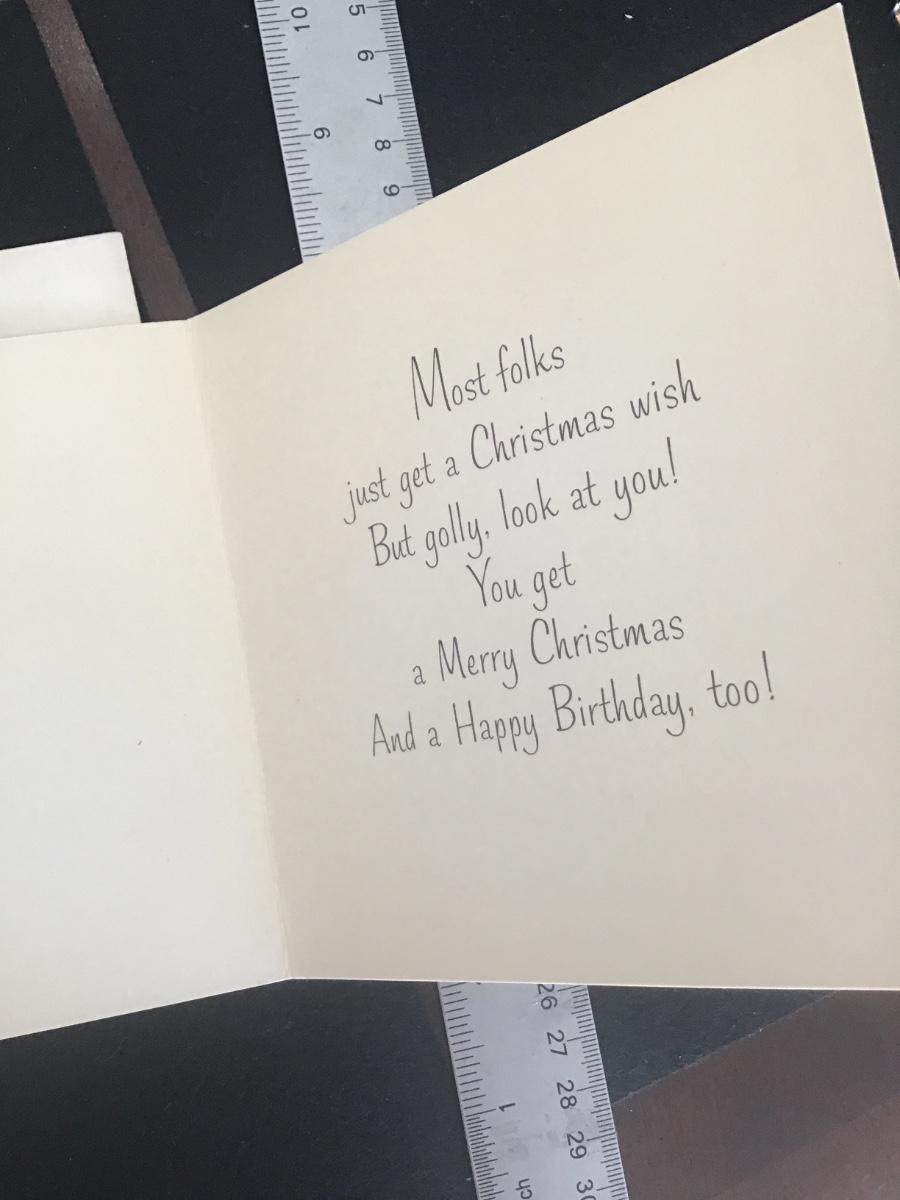 10
5
6
7
9
8
9
Most folks
just get a Christmas wish
But golly, look at you!
You get
a Merry Christmas
And a Happy Birthday, too!
26
27
1
28
29